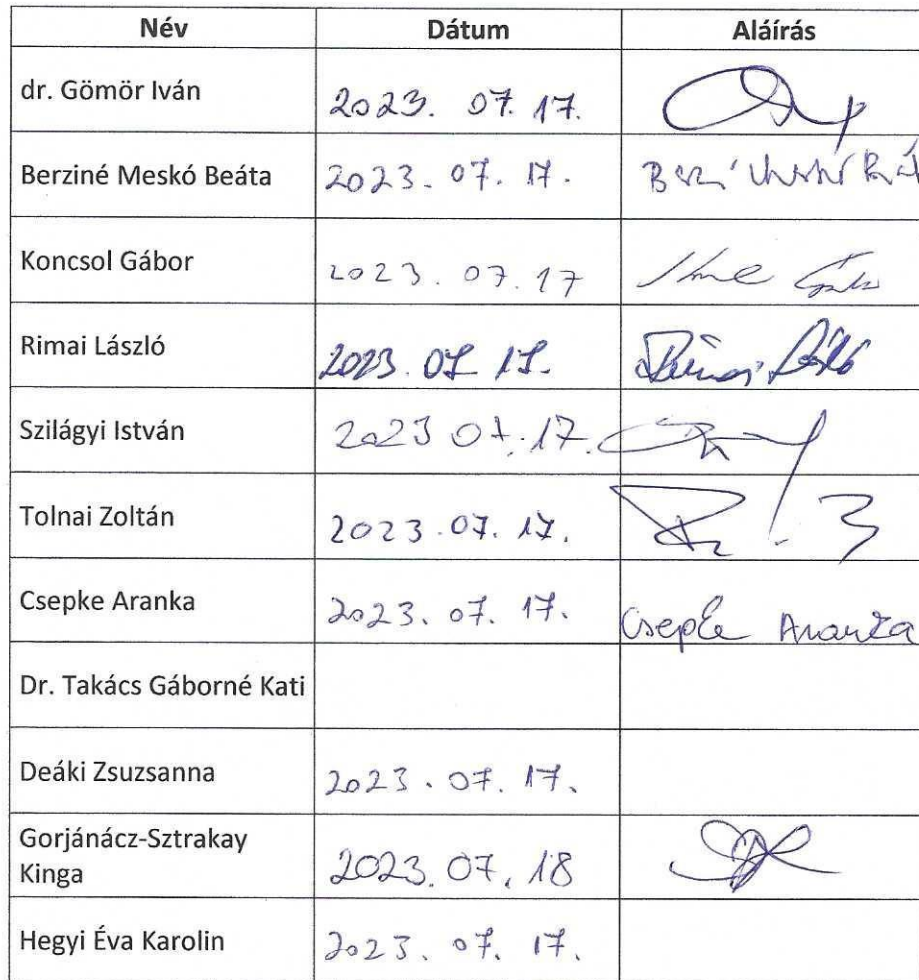 Név Dátum Aláírás
dr. Gömör Iván 2023. 07. 17.
Berziné Meskó Beáta 2023. 07. 17.
Koncsol Gábor 2023. 07. 17
Rimai László 2023. 07 17.
Szilágyi István 2023 07.17.
Tolnai Zoltán 2023.07. 17.
Csepke Aranka 2023. 07. 17. Csepke Aranka
Dr. Takács Gáborné Kati
Deáki Zsuzsanna 2023. 07. 17.
Gorjánácz-Sztrakay
Kinga 2023. 07. 18
Hegyi Éva Karolin 2023. 07. 17.